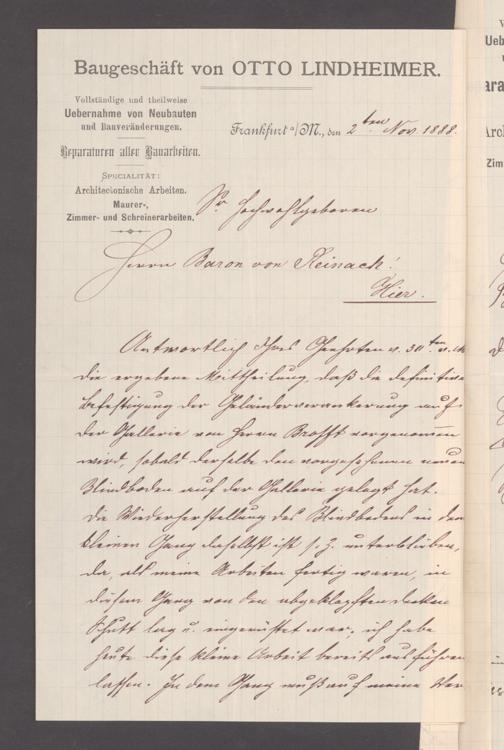 Baugeschäft von OTTO LINDHEIMER.
Vollständige und theilweise
Uebernahme von Neubauten
und Bauveränderungen.
Reparaturen aller Bauarbeiten.
SPECIALITÄT:
Architectonische Arbeiten.
Maurer-,
Zimmer- und Schreinerarbeiten.
Frankfurt a/M., den 2ten Nov. 1888.
Sr. Hochwohlgeboren
Herrn Baron von Reinach!
Hier.
Antwortlich Ihres Geehrten v. 30ten v. Mt.
die ergebene Mittheilung, daß die definitive
Befestigung der Geländerverankerung auf
der Gallerie von Herrn Brofft vorgenommen
wird, sobald derselbe den vorgesehenen neuen
Blindboden auf der Gallerie gelegt hat.
Die Wiederherstellung des Blindbodens in dem
kleinen Gang daselbst ist s. Z. unterblieben,
da, als meine Arbeiten fertig waren, in
diesem Gang von den abgeklopften Decken
Schutt lag u. eingerüstet war, ich habe
heute diese kleine Arbeit bereits ausführen
lassen. In dem Gang muß auf meine